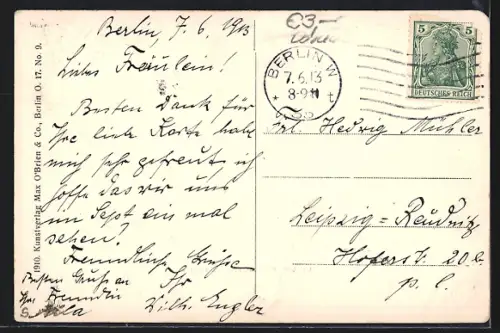 Berlin, 7.6, 1913
Liebes Fräulein!
Besten Dank für
Ihre liebe Karte habe
mich sehr gefreut ich
hoffe das wir uns
im Sept ein mal
sehen?
Freundliche Grüße
Ihr
Wilh. Engler
Besten Gruß an
Ihre Freundin
1910. Kunstverlag Max O'Brien & Co., Berlin O. 17. No 9.
€3–
BERLIN W
7.6.13
8-9 N
* 35 t
5 5
DEUTSCHES REICH
Frl. Hedwig Mühler
Leipzig=Reudnitz
Hoferst. 20
p. l.